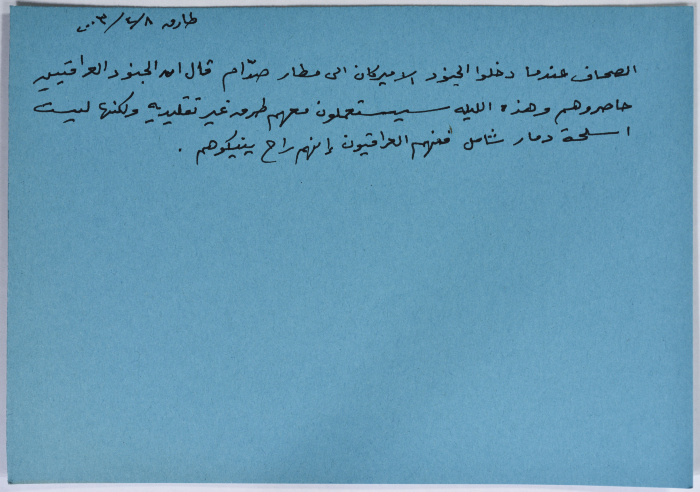 طارق ٢٠٠٣/٤/٨
الصحاف عندما دخلوا الجنود الاميركان الى مطار صدّام قال ان الجنود العراقيين
حاصروهم وهذه الليله سيستعملون معهم طرق غير تقليديه ولكنها ليست
اسلحة دمار شامل ففهم العراقيون إنهم راح ينيكوهم .